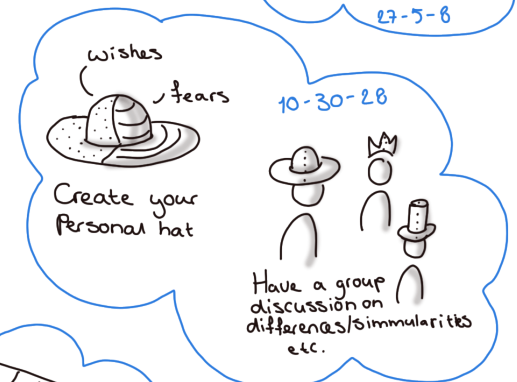 27-5-8
wishes
fears
10-30-28
Create your
Personal hat
Have a group
discussion on
differences/simmularities
etc.